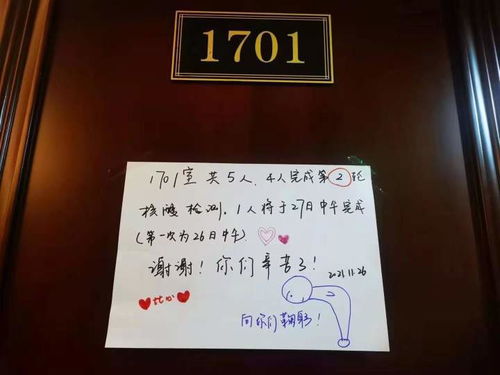 1701
1701室 共5人、4人完成第2轮
核酸检测，1人将于27日中午完成
(第一次为26日中午)
谢谢！你们辛苦了！
2021.11.26
比心
向你们鞠躬！